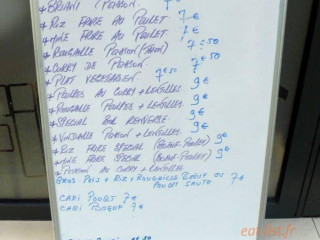 * BRIANI (POISON) 7€
* RIZ FRIRE AU POULET 7€
* MINE FRIRE AU POULET 7€
* ROUGAILLE POISON (THON) 7€50
* CURRY DE POISON 7€50
* PLAT VEGETARIEN 7€50
* POULPES AU CURRY + LENTILLES 9€
* ROUGAILLE POULPES + LENTILLES 9€
* SPECIAL BOL RENVERSE 9€
* VINDAILLE POISON + LENTILLES 9€
* RIZ FRIRE SPECIAL (BOEUF-POULET) 9€
* MINE FRIRE SPECIAL (BOEUF-POULET) 9€
* POISON AU CURRY + LENTILLES
GROS-POIS + RIZ + ROUGAILLE BOEUF OU
POULET SAUTE 7€
CARI POULET 7€
CARI BOEUF